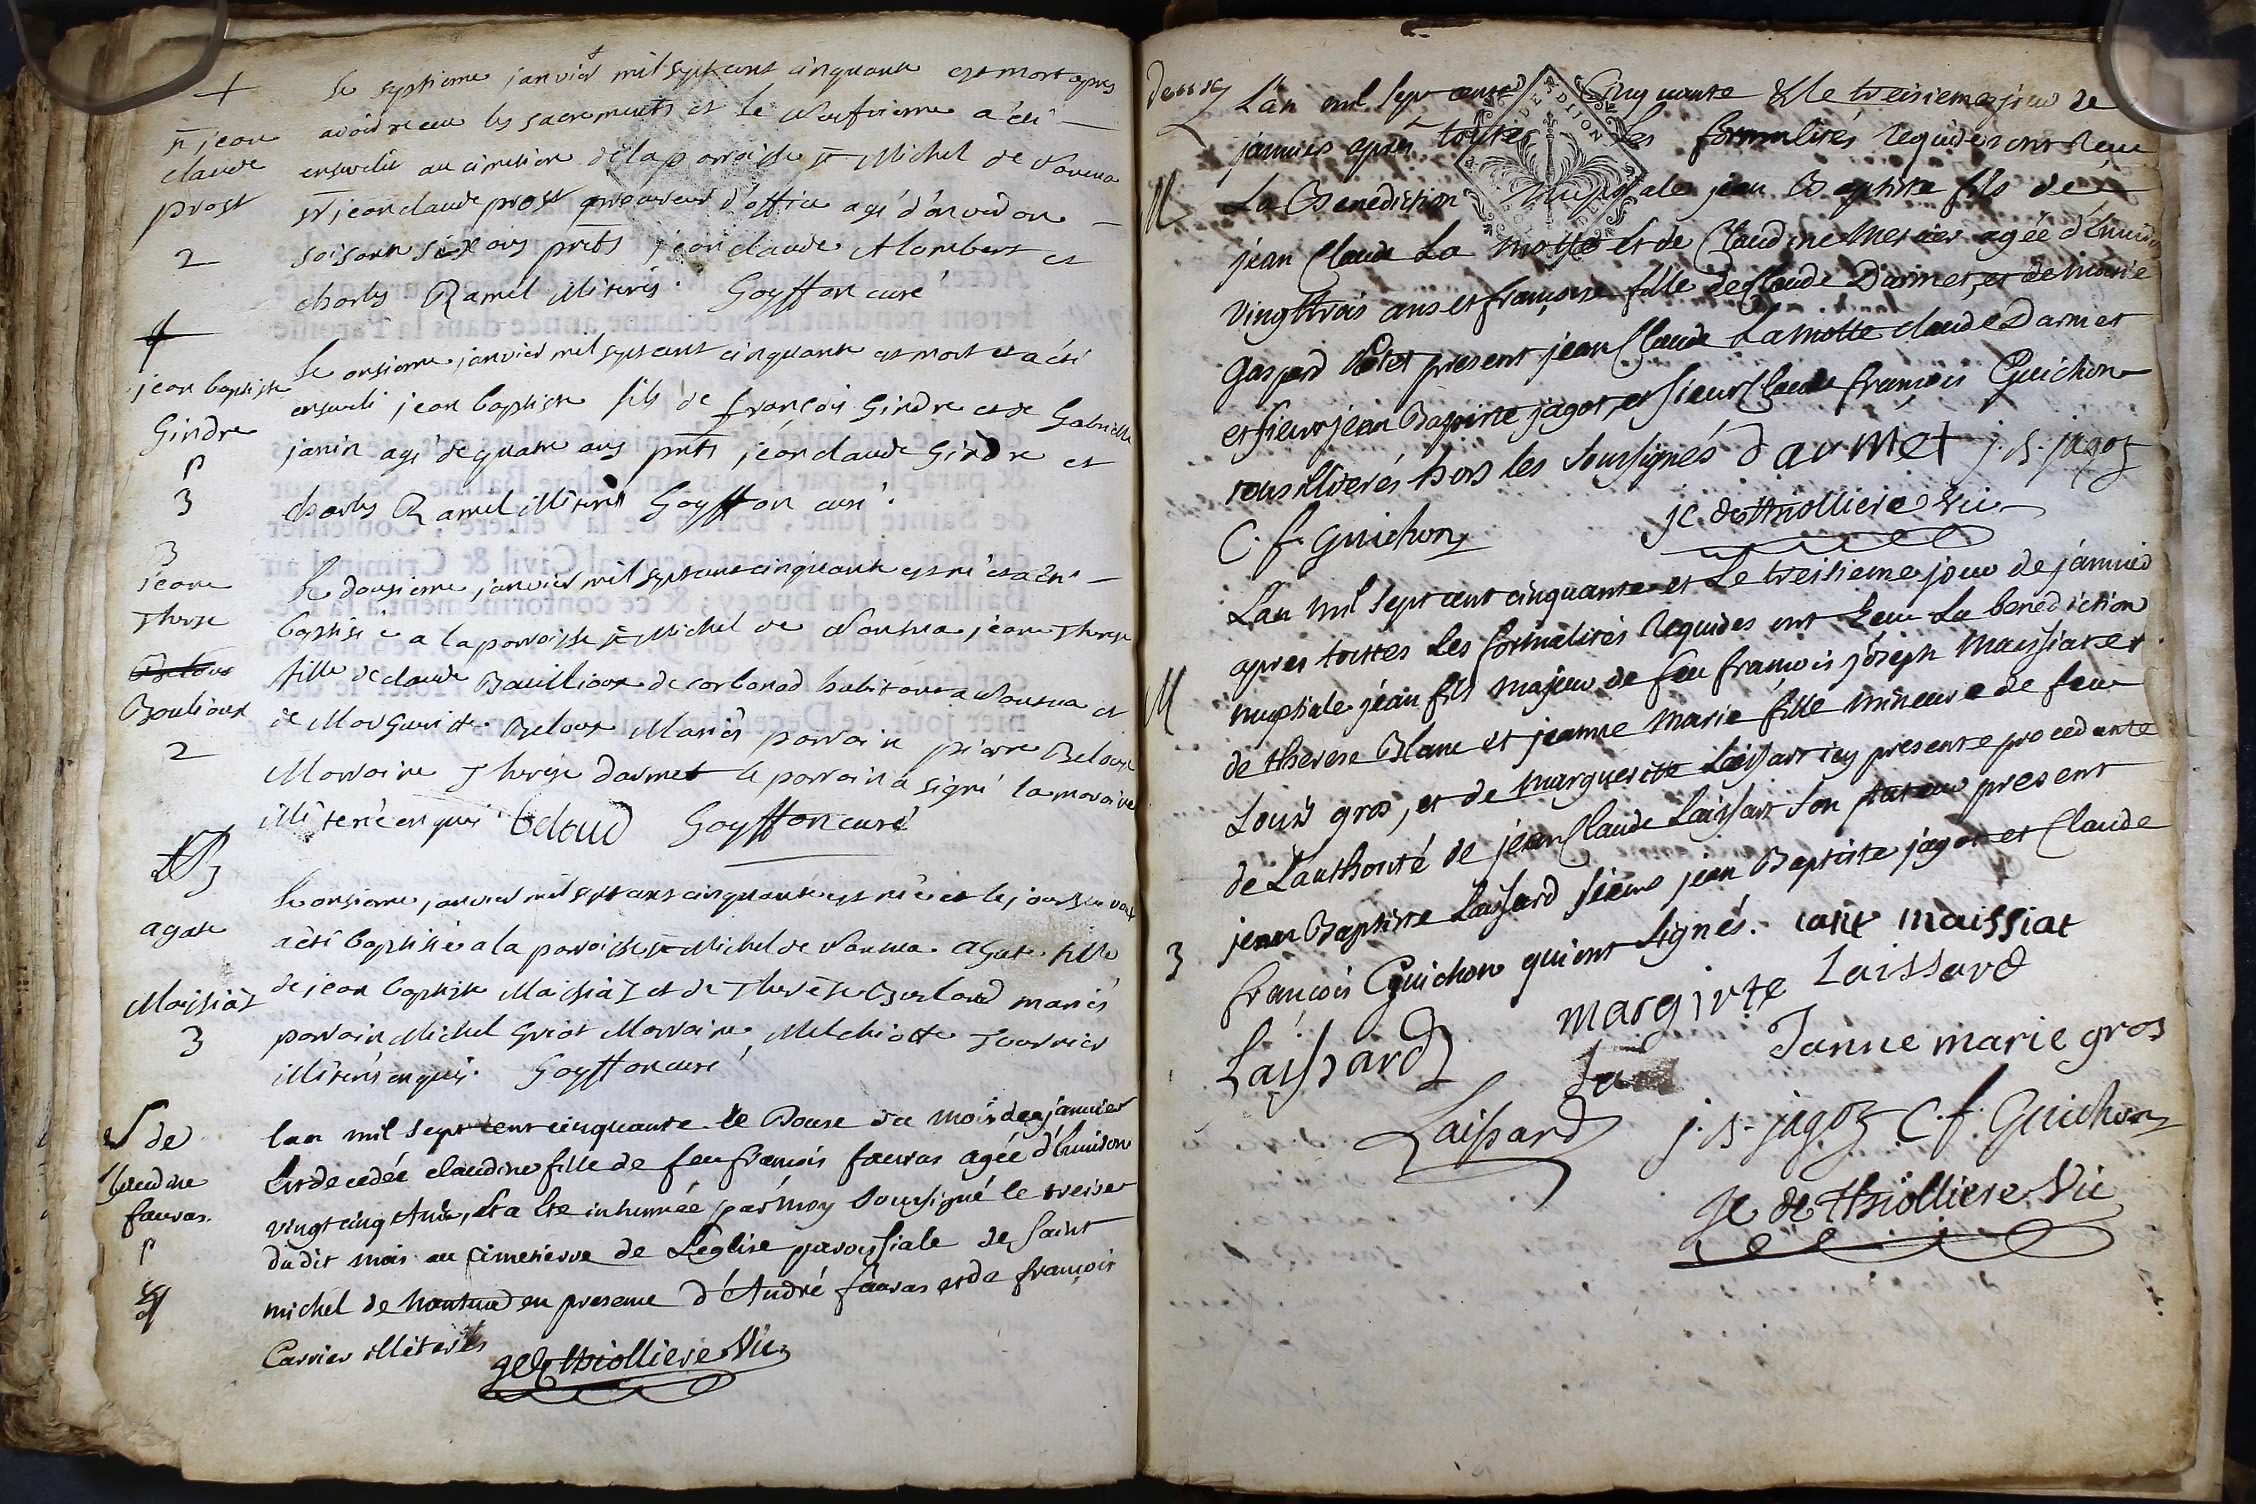 +
Le septieme janvier mil sept cent cinquante est mort apres
sr jean
claude
prost
2
avoir receu les sacrements et le a été
ensevelit au cimetiere de la parroisse st Michel de Nantua
sr jean claude prost procureur d'office agé d'environ
soisante six ans prnts jean claude Alombert et
charles Ramel illiterés. Goyffon curé
jean baptiste
Gindre
3
Le onsieme janvier mil sept cent cinquante est mort et a été
enseveli jean baptiste fils de françois Gindre et de Gabrielle
janin agé de quatre ans prnts jean claude Gindre et
charles Ramel illiterés Goyffon curé.
3
jeane
Therese
Belous
Boulioux
2
Le dousieme janvier mil sept cent cinquante est né et a été
baptisée a la parroisse st Michel de Nantua jeane Therese
fille de claude Bouillioux de corbonod habitant a Nantua et
de Marguerite Beloux Mariés parrain pierre Beloux
Marraine Therese Darmet le parrain a signé la maraine
illiterée enquis beloud Goyffon curé
agate
Maissiat
3
Le onsieme janvier mil sept cent cinquante est née et le jour suivant
a été baptisée a la parroisse st Michel de Nantua. agate fille
de jean baptiste Maissiat et de Therese Burloud mariés
parrain Michel Griot Marraine Melchiotte
illiterés enquis. Goyffon curé
S de
Claudine
fauvas.
L'an mil sept cent cinquante le Douse du mois de janvier
Est decedée claudine fille de feu françois fauvas agée d'Environ
vingt cinq Ans, Et a Ete inhumée par moy soussigné le treise
du dit mois au Cimetierre de L'eglise paroissiale de Saint
michel de Nantua en presence d'André fauvas et de françois
Carrier illiterés
jc de thiolliere Vic
deux
L'an mil Sept cent Cinquante & le treisieme jour de
janvier apres toutes les formalités requises ont Receu
M
La Benediction Nuptiale jean Baptiste fils de
jean Claude La motte et de Claudine Mercier agée d'Environ
vingt trois ans et françoise fille de Claude Darmet, et de Marie
Gaspard Votet present jean Claude Lamotte claude Darmet
et sieur jean Baptiste jagot, et sieur Claude françois Guichon
tous illiterés hors les soussignés darmet j. B. jagot
C. f. Guichon
jc de thiolliere Vic
L'an mil sept cent cinquante et Le treisieme jour de janvier
apres toutes les formalités requises ont Receu La benediction
M
nuptiale jean fils majeur de feu françois joseph Maissiat et
de therese Blanc et jeanne marie fille mineure de feu
Louis gros, et de marguerite Laissart icy presente procedante
de L'authorité de jean Claude Laissart son tuteur present
jean Baptiste Laissard sieur jean Baptiste jagot et Claude
3
françois Guichon qui ont signés. maissiat
margirte Laissard
Laissard
Janne marie gros
Laissard
j. B. jagot C. f. Guichon
jc de thiolliere Vic